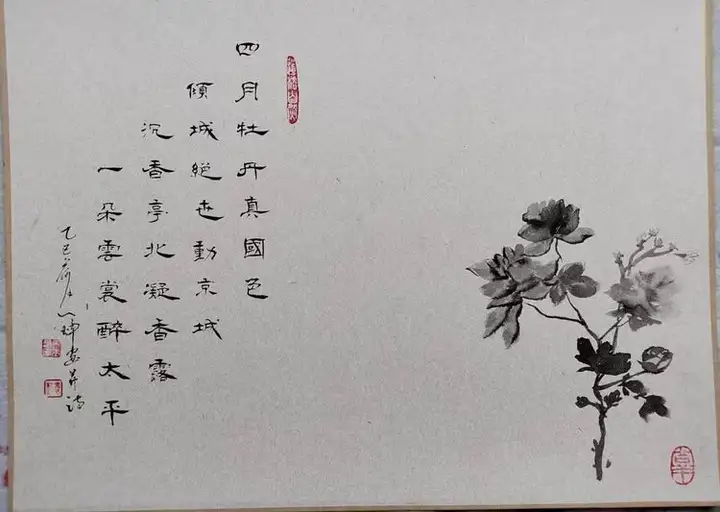 四月牡丹真國色
傾城絕世動京城
沉香亭北凝香露
一朵雲裳醉太平
乙巳荷月
畫并詩